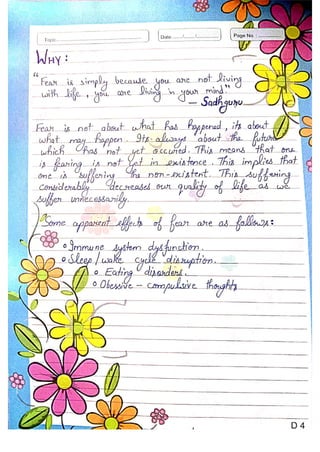 Topic
Date
Page No.
WHY:
"Fear is simply because you are not living
with life, you are living in your mind"
— Sadhguru
Fear is not about what has happened, its about
what may happen. Its always about the future
which has not yet occured. This means that one
is fearing is not yet in existence. This implies that
one is suffering the non-existent. This suffering
considerably decreases our quality of life as we
suffer unnecessarily.
Some apparent effects of fear are as follows:
Immune system dysfunction.
Sleep / wake cycle disruption.
Eating disorders.
Obessive - compulsive thoughts
D 4